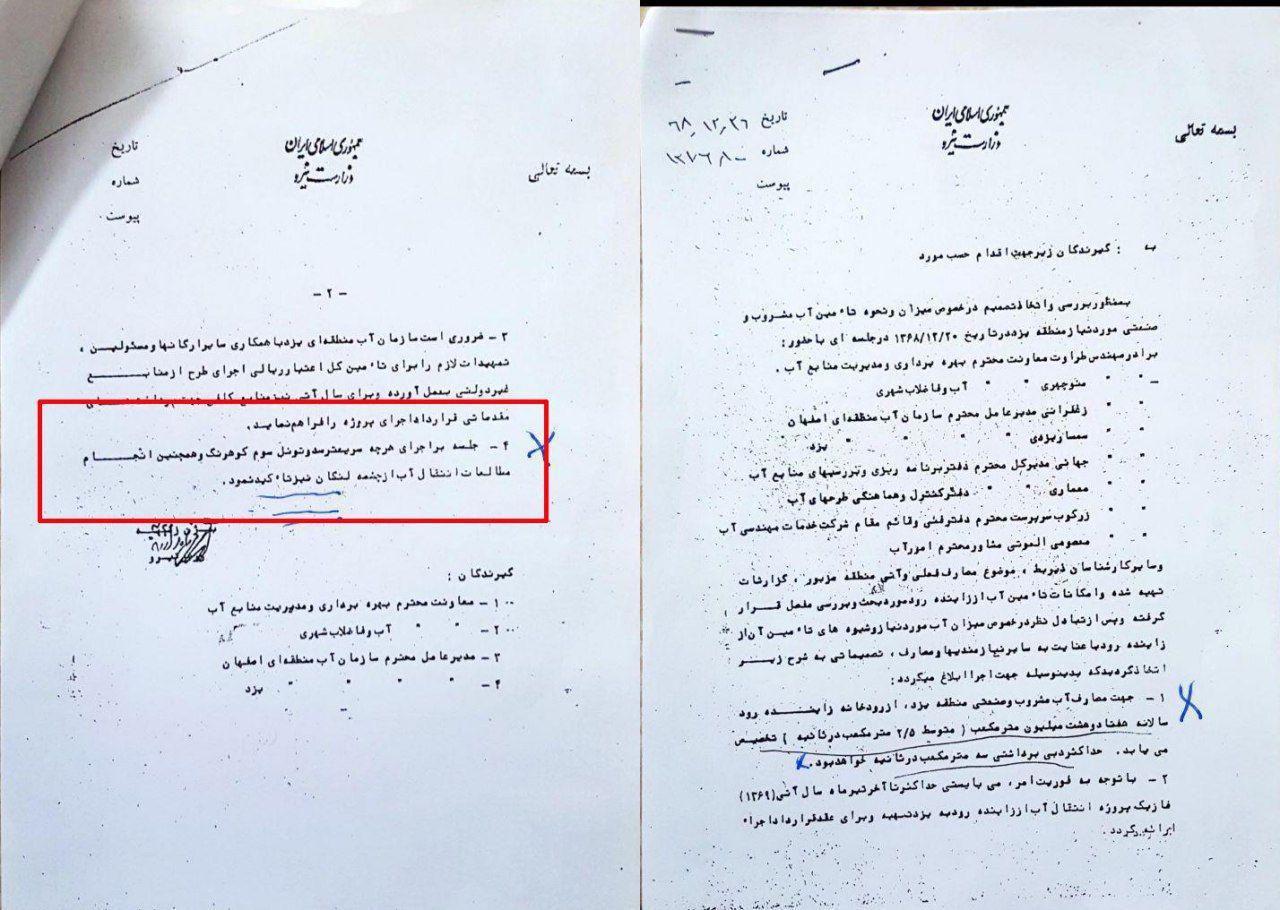 بسمه تعالی
جمهوری اسلامی ایران
وزارت نیرو
تاریخ ۶۸٫۱۲٫۲۶
شماره
پیوست
به : گیرندگان زیر جهت اقدام حسب مورد
بمنظور بررسی و اتخاذ تصمیم در خصوص میزان و نحوه تاٴمین آب مشروب و
صنعتی مورد نیاز منطقه یزد در تاریخ ۱۳۶۸/۱۲/۲۰ در جلسه ای با حضور :
برادر مهندس طراوت معاونت محترم بهره برداری و مدیریت منابع آب .
" " منوچهری " " آب و فاضلاب شهری
" " زعفرانی مدیرعامل محترم سازمان آب منطقه‌ای اصفهان
" " سمسار یزدی " " " " یزد
" " جهانی مدیرکل محترم دفتر برنامه ریزی و بررسیهای منابع آب
" " معماری " " دفتر کنترل و هماهنگی طرحهای آب
" " زرکوب سرپرست محترم دفتر فنی و قائم مقام شرکت خدمات مهندسی آب
" " معصومی الموتی مشاور محترم امور آب
و سایر کارشناسان ذیربط ، موضوع مصارف فعلی و آتی منطقه مزبور ، گزارشات
تهیه شده و امکانات تاٴمین آب از زاینده رود مورد بحث و بررسی مفصل قرار
گرفته و پس از تبادل نظر در خصوص میزان آب مورد نیاز و شیوه های تاٴمین آن از
زاینده رود با عنایت به سایر نیازمندیها و مصارف ، تصمیماتی به شرح زیر
اتخاذ گردید که بدینوسیله جهت اجرا ابلاغ میگردد :
۱ - جهت مصارف آب مشروب و صنعتی منطقه یزد ، از رودخانه زاینده رود
سالانه هفتاد و هشت میلیون مترمکعب ( متوسط ۲/۵ مترمکعب در ثانیه ) تخصیص
می یابد . حداکثر دبی برداشتی سه مترمکعب در ثانیه خواهد بود .
۲ - با توجه به فوریت امر ، می بایستی حداکثر تا آخر تیرماه سال آتی (۱۳۶۹)
فاز یک پروژه انتقال آب از زاینده رود به یزد تهیه و برای عقد قرارداد اجراء
ارائه گردد .
بسمه تعالی
جمهوری اسلامی ایران
وزارت نیرو
تاریخ
شماره
پیوست
- ۲ -
۳ - ضروری است سازمان آب منطقه‌ای یزد با همکاری سایر ارگانها و مسئولین ،
تمهیدات لازم را برای تاٴمین کل اعتبار ریالی اجرای طرح از منابع
غیردولتی بعمل آورده و برای سال آتی نیز منابع کافی جهت
مقدماتی قرارداد اجرای پروژه را فراهم نماید .
۴ - جلسه بر اجرای هرچه سریعتر سد و تونل سوم کوهرنگ و همچنین انجام
مطالعات انتقال آب از چشمه لنگان نیز تاٴکید نمود .
گیرندگان :
۱ - معاونت محترم بهره برداری و مدیریت منابع آب
۲ - " " آب و فاضلاب شهری
۳ - مدیرعامل محترم سازمان آب منطقه‌ای اصفهان
۴ - " " " " یزد